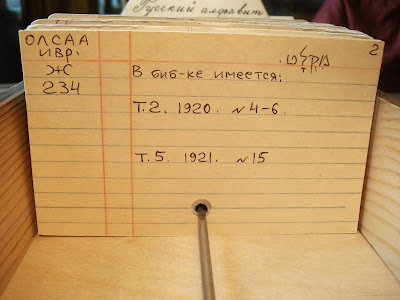 Русский алфавит
ОЛСАА
ИВР.
ЖС
234
מקלט.
2
В биб-ке имеется:
Т.2. 1920. №4-6.
Т.5. 1921. №15